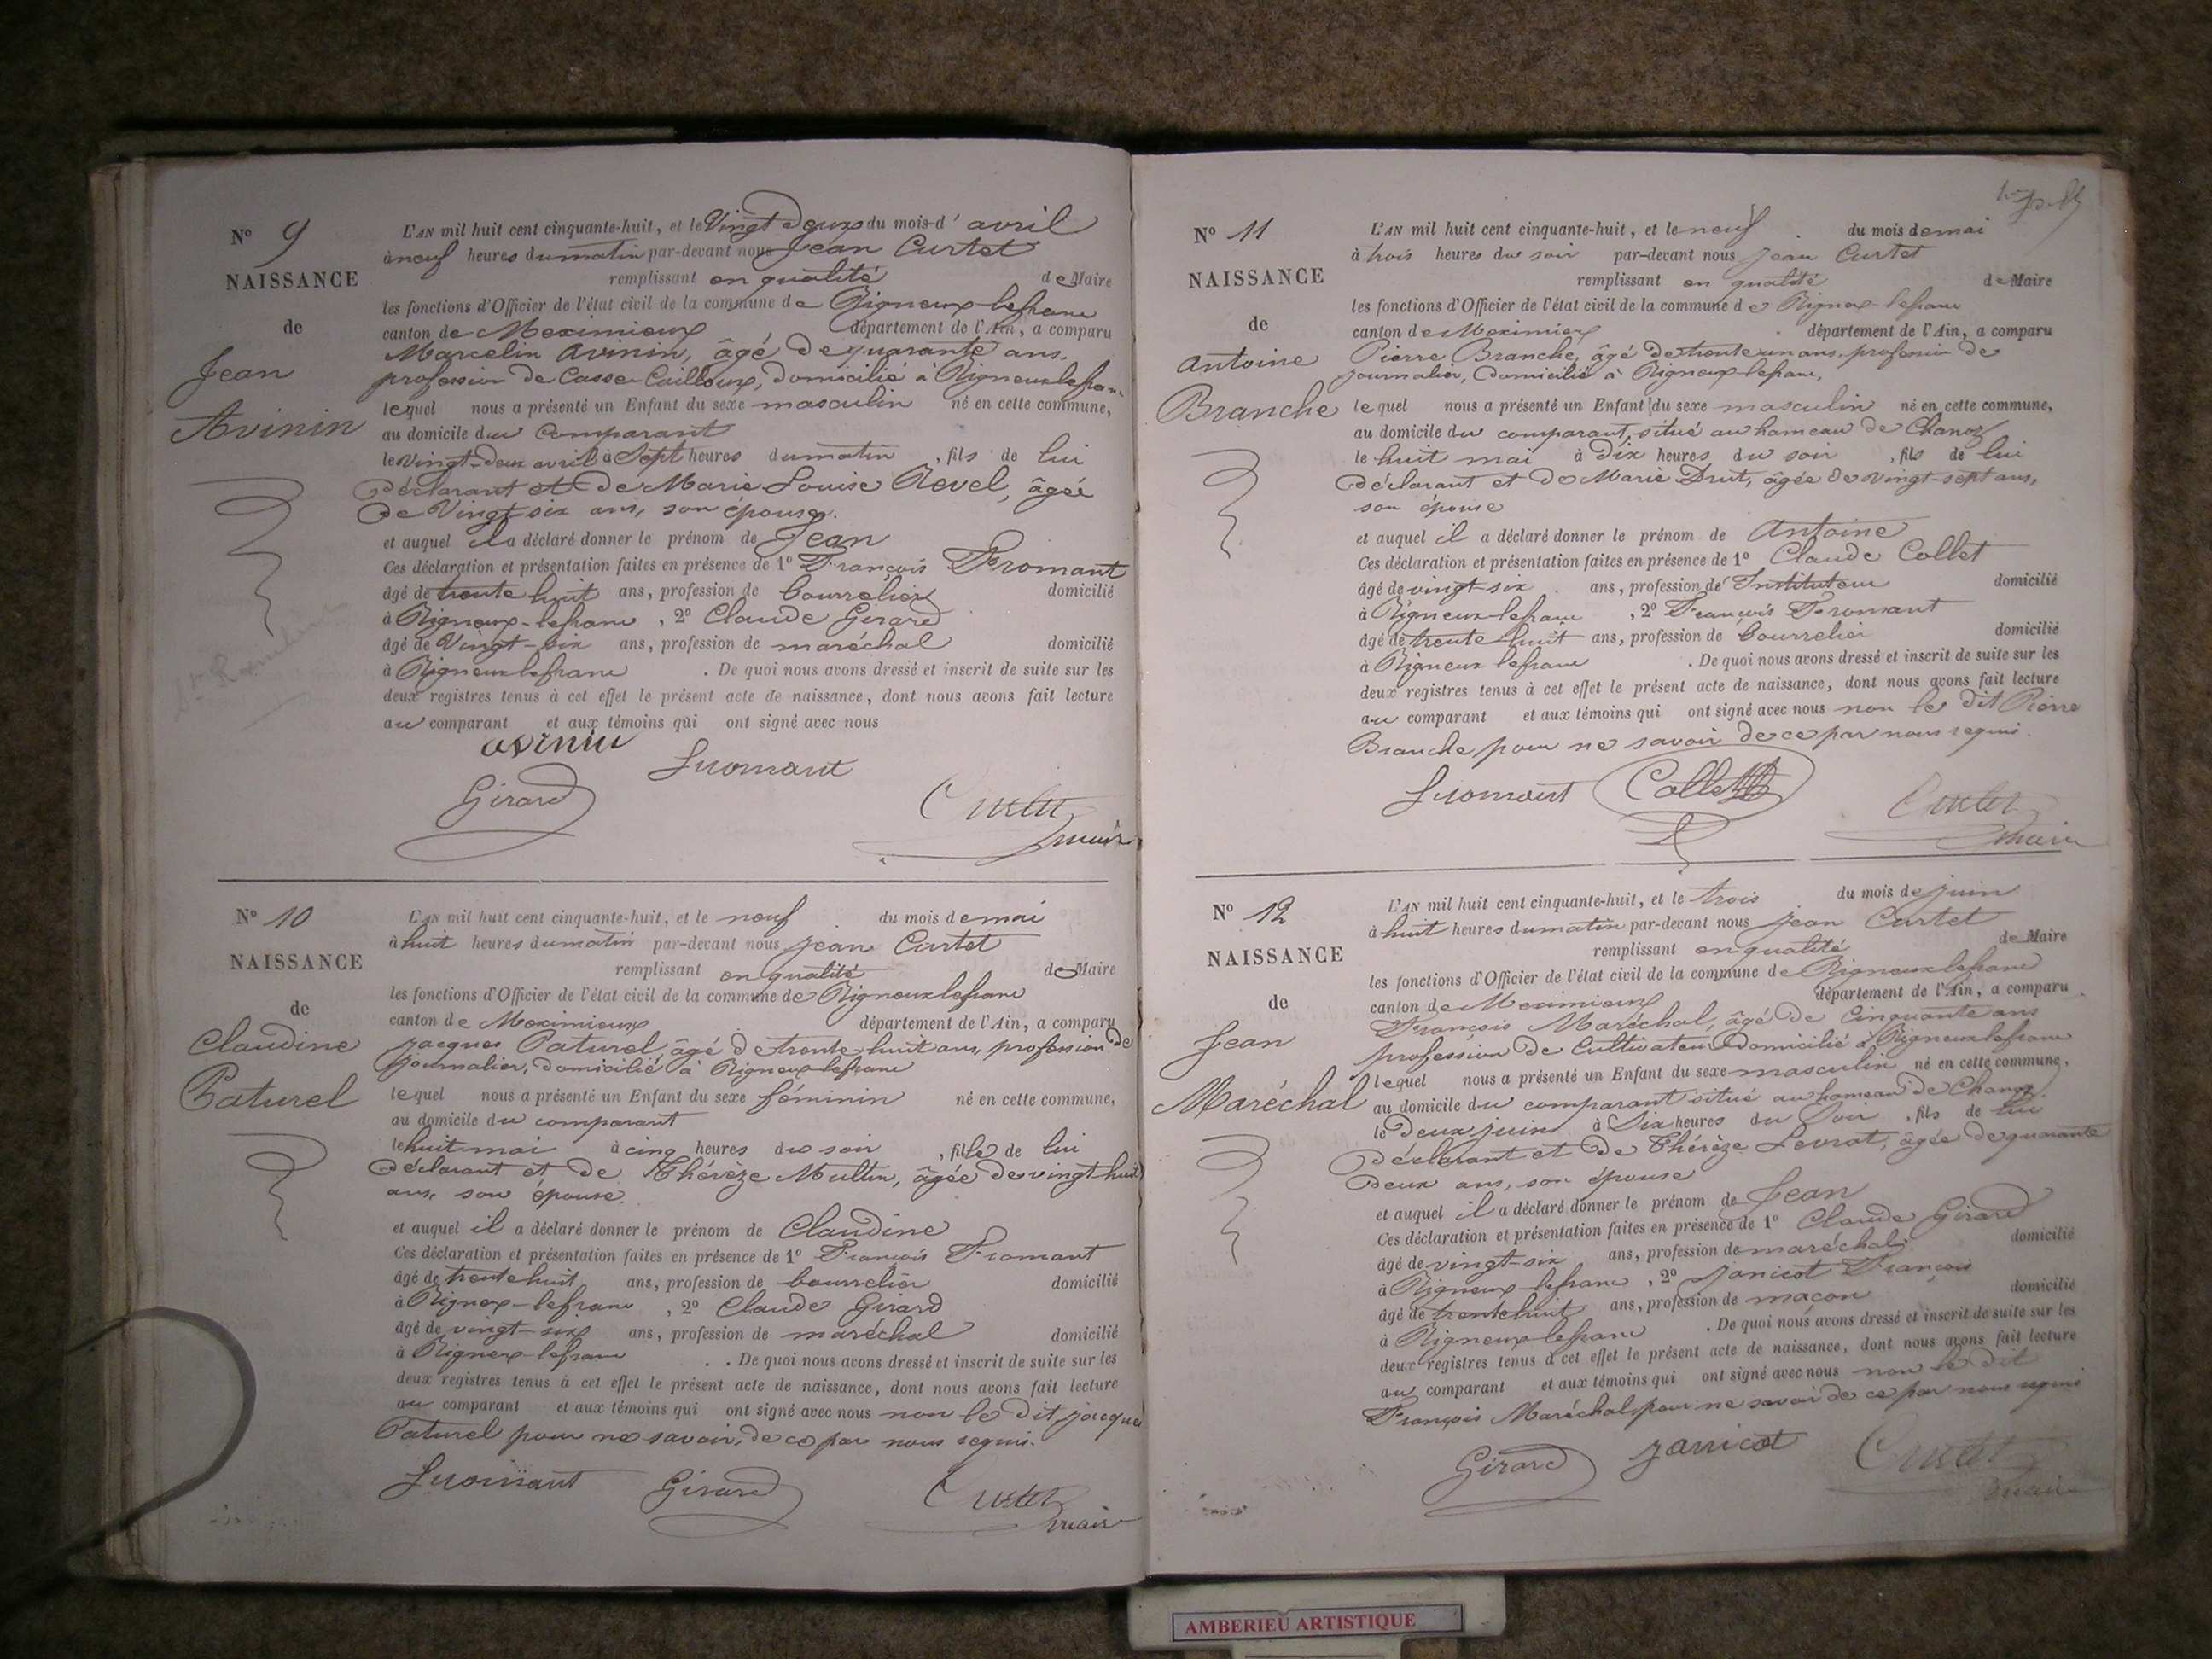 N° 9
NAISSANCE
de
Jean
Avinin
L'AN mil huit cent cinquante-huit, et le Vingt Deux du mois d'avril
à neuf heures du matin par-devant nous Jean Curtet
remplissant en qualité de Maire
les fonctions d'Officier de l'état civil de la commune de Rigneux-lefranc
canton de Meximieux département de l'Ain, a comparu
Marcelin Avinin, âgé de quarante ans,
profession de Casse-Cailloux, domicilié à Rigneux lefranc
lequel nous a présenté un Enfant du sexe masculin né en cette commune,
au domicile du comparant
le vingt-deux avril à Sept heures du matin, fils de lui
Déclarant et de Marie Louise Revel, âgée
de Vingt-six ans, son épouse.
et auquel il a déclaré donner le prénom de Jean
Ces déclaration et présentation faites en présence de 1° François Fromant
âgé de trente huit ans, profession de bourrelier domicilié
à Rigneux-lefranc, 2° Claude Girard
âgé de Vingt-six ans, profession de maréchal domicilié
à Rigneux lefranc. De quoi nous avons dressé et inscrit de suite sur les
deux registres tenus à cet effet le présent acte de naissance, dont nous avons fait lecture
au comparant et aux témoins qui ont signé avec nous
avinin
Fromant
Girard
Curtet
maire
N° 10
NAISSANCE
de
Claudine
Paturel
L'AN mil huit cent cinquante-huit, et le neuf du mois de mai
à huit heures du matin par-devant nous Jean Curtet
remplissant en qualité de Maire
les fonctions d'Officier de l'état civil de la commune de Rigneux lefranc
canton de Meximieux département de l'Ain, a comparu
Jacques Paturel, âgé de trente-huit ans, profession de
journalier, domicilié à Rigneux lefranc
lequel nous a présenté un Enfant du sexe féminin né en cette commune,
au domicile du comparant
le huit mai à cinq heures du soir, fille de lui
Déclarant et de Thérèze Multin, âgée de vingt-huit
ans, son épouse.
et auquel il a déclaré donner le prénom de Claudine
Ces déclaration et présentation faites en présence de 1° François Fromant
âgé de trente huit ans, profession de bourrelier domicilié
à Rigneux-lefranc, 2° Claude Girard
âgé de vingt-six ans, profession de maréchal domicilié
à Rigneux-lefranc. De quoi nous avons dressé et inscrit de suite sur les
deux registres tenus à cet effet le présent acte de naissance, dont nous avons fait lecture
au comparant et aux témoins qui ont signé avec nous non le dit Jacques
Paturel pour ne savoir, de ce par nous requis.
Fromant Girard Curtet
maire
N° 11
NAISSANCE
de
Antoine
Branche
L'AN mil huit cent cinquante-huit, et le neuf du mois de mai
à trois heures du soir par-devant nous Jean Curtet
remplissant en qualité de Maire
les fonctions d'Officier de l'état civil de la commune de Rigneux-lefranc
canton de Meximieux département de l'Ain, a comparu
Pierre Branche, âgé de trente un ans, profession de
journalier, Domicilié à Rigneux-lefranc,
lequel nous a présenté un Enfant du sexe masculin né en cette commune,
au domicile du comparant, situé au hameau de Chanoz
le huit mai à Dix heures du soir, fils de lui
Déclarant et de Marie Drut, âgée de vingt-sept ans,
son épouse
et auquel il a déclaré donner le prénom de Antoine
Ces déclaration et présentation faites en présence de 1° Claude Collet
âgé de vingt-six ans, profession de Instituteur domicilié
à Rigneux-lefranc, 2° François Fromant
âgé de trente huit ans, profession de bourrelier domicilié
à Rigneux lefranc. De quoi nous avons dressé et inscrit de suite sur les
deux registres tenus à cet effet le présent acte de naissance, dont nous avons fait lecture
au comparant et aux témoins qui ont signé avec nous non le dit Pierre
Branche pour ne savoir de ce par nous requis.
Fromant Collet Curtet
maire
N° 12
NAISSANCE
de
Jean
Maréchal
L'AN mil huit cent cinquante-huit, et le trois du mois de juin
à huit heures du matin par-devant nous Jean Curtet
remplissant en qualité de Maire
les fonctions d'Officier de l'état civil de la commune de Rigneux lefranc
canton de Meximieux département de l'Ain, a comparu
François Maréchal, âgé de Cinquante ans
profession de Cultivateur Domicilié à Rigneux lefranc
lequel nous a présenté un Enfant du sexe masculin né en cette commune,
au domicile du comparant situé au hameau de Chanoz
le Deux juin à Six heures du Soir, fils de lui
Déclarant et de Thérèze Levrat, âgée de quarante
Deux ans, son épouse
et auquel il a déclaré donner le prénom de Jean
Ces déclaration et présentation faites en présence de 1° Claude Girard
âgé de vingt-six ans, profession de maréchal domicilié
à Rigneux-lefranc, 2° Janicot François
âgé de trente huit ans, profession de maçon domicilié
à Rigneux-lefranc. De quoi nous avons dressé et inscrit de suite sur les
deux registres tenus à cet effet le présent acte de naissance, dont nous avons fait lecture
au comparant et aux témoins qui ont signé avec nous non le dit
François Maréchal pour ne savoir de ce par nous requis
Girard Janicot Curtet
maire
AMBERIEU ARTISTIQUE